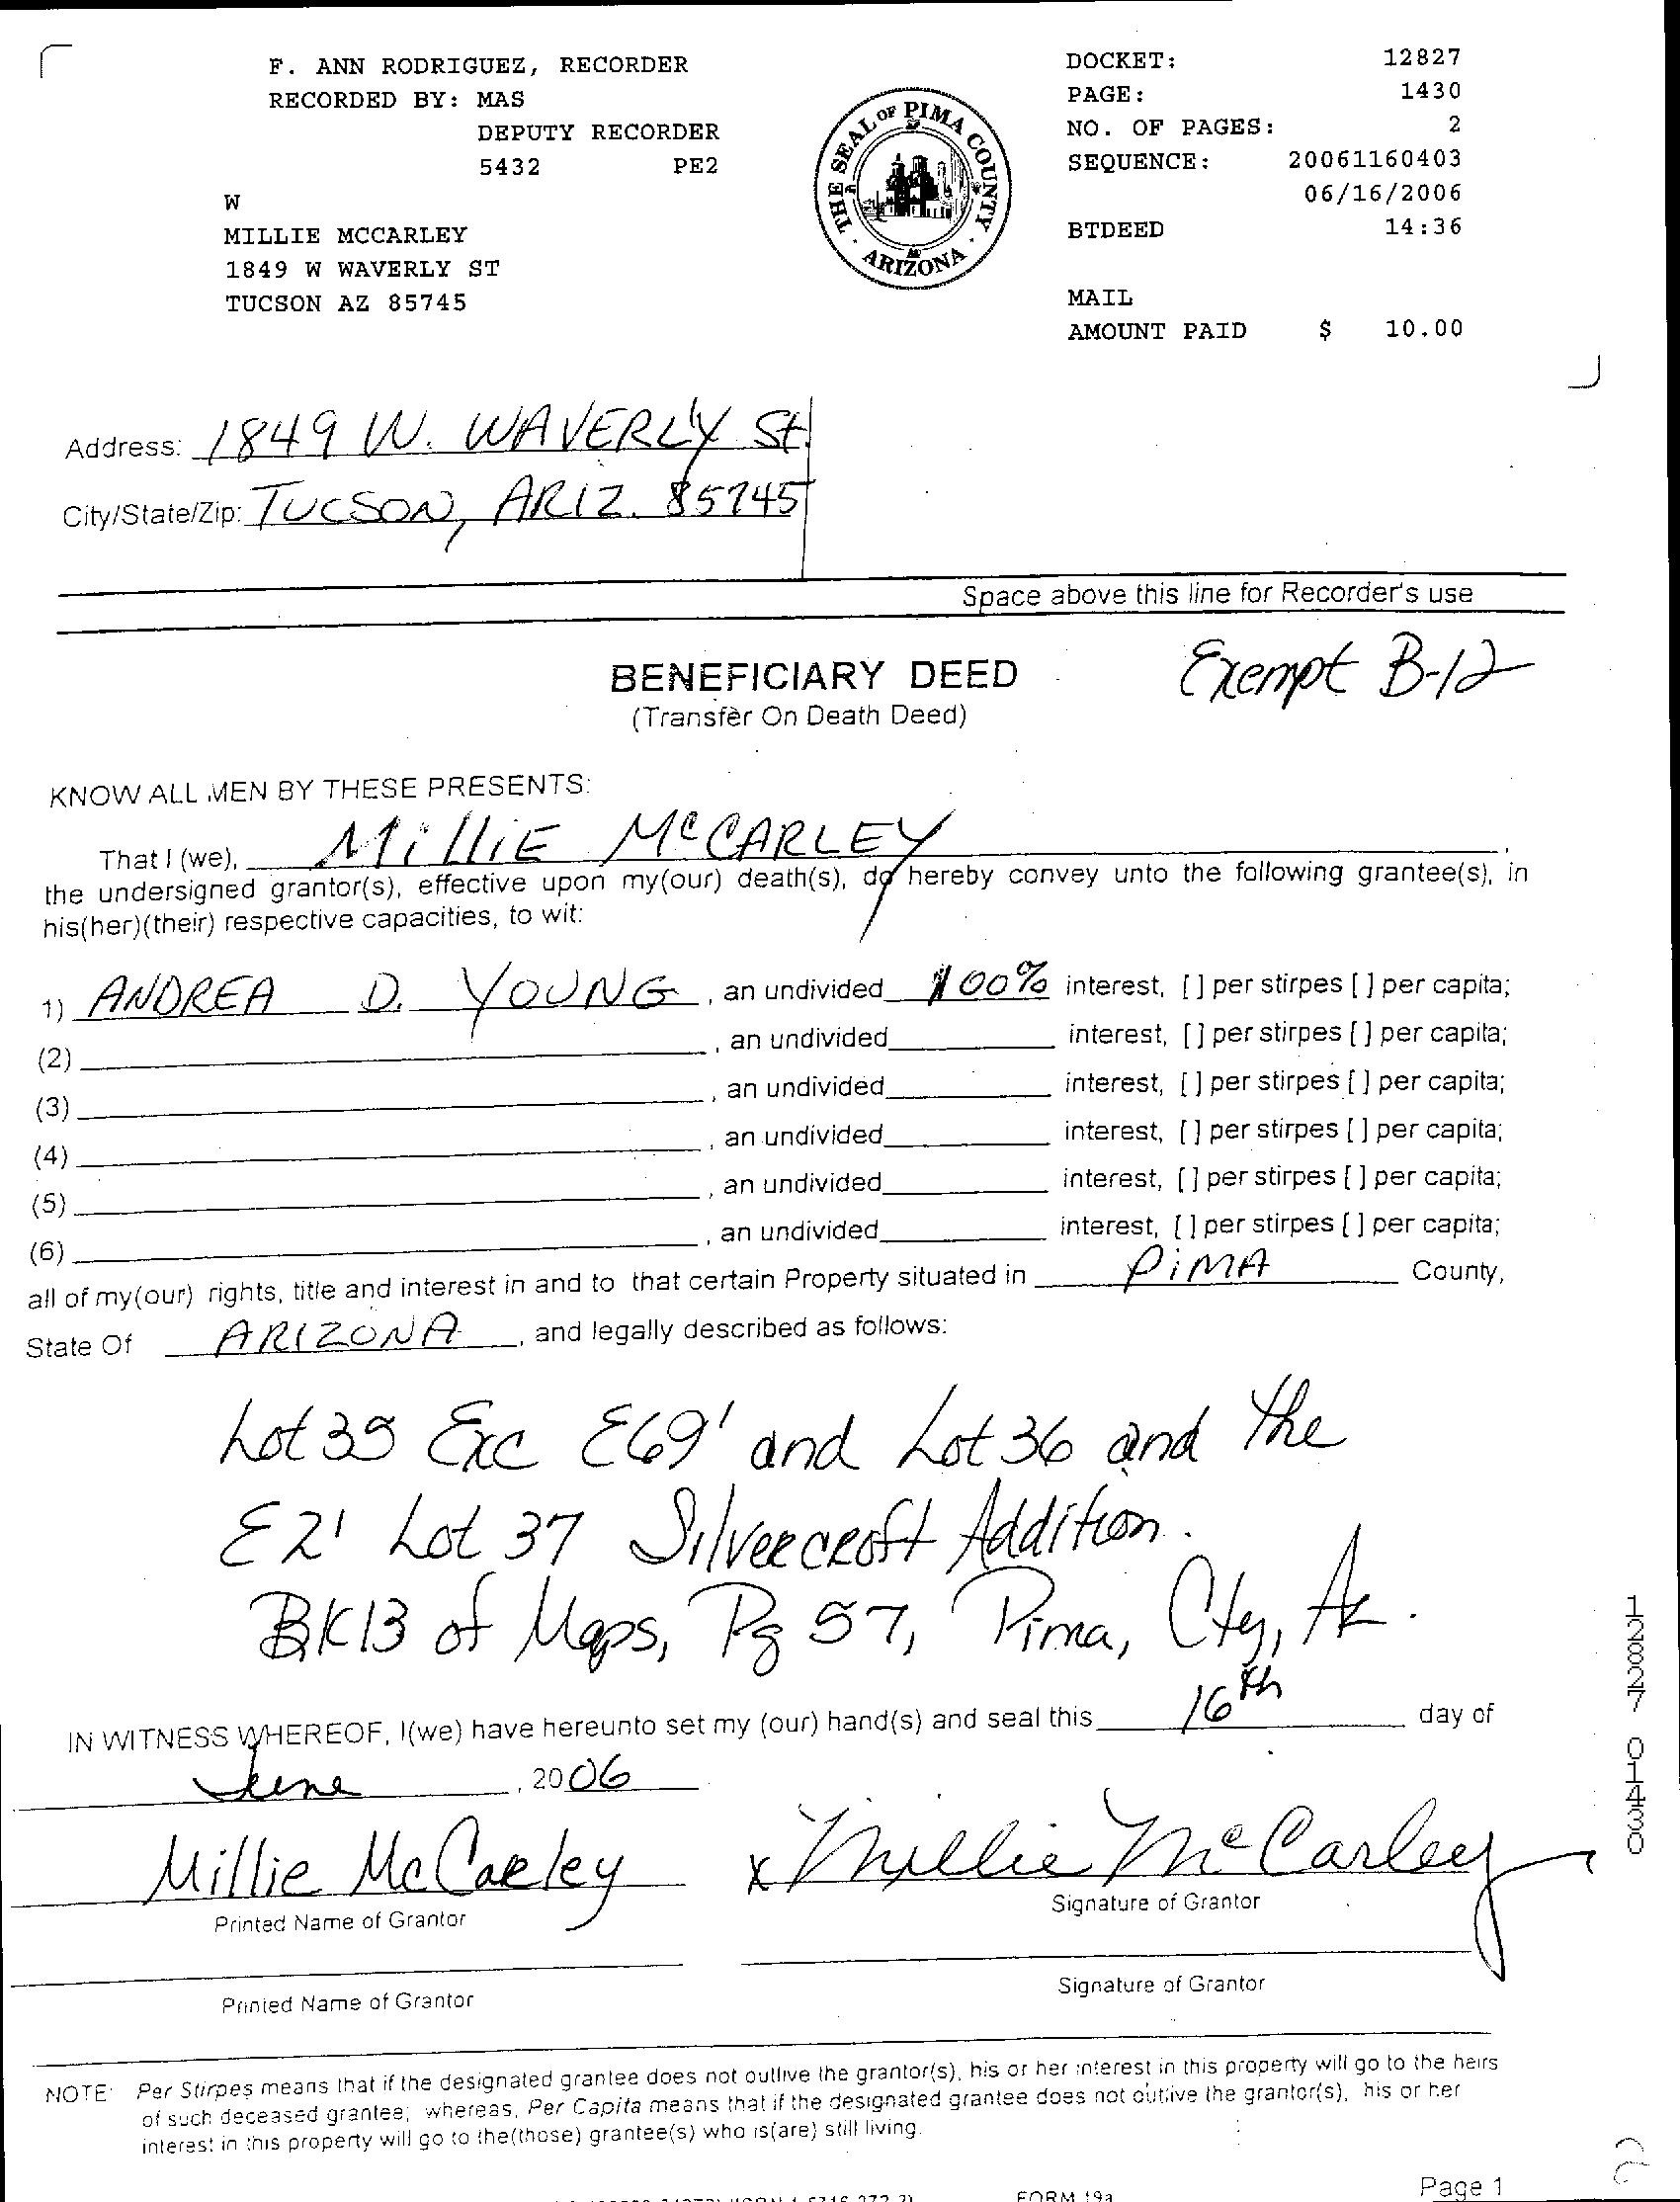 F. ANN RODRIGUEZ, RECORDER
RECORDED BY: MAS
DEPUTY RECORDER
5432 PE2
W
MILLIE MCCARLEY
1849 W WAVERLY ST
TUCSON AZ 85745
THE SEAL OF PIMA COUNTY
ARIZONA
DOCKET: 12827
PAGE: 1430
NO. OF PAGES: 2
SEQUENCE: 20061160403
06/16/2006
BTDEED 14:36
MAIL
AMOUNT PAID $ 10.00
Address: 1849 W. WAVERLY St.
City/State/Zip: TUCSON, ARIZ. 85745
Space above this line for Recorder's use
BENEFICIARY DEED
(Transfer On Death Deed)
Exempt B-12
KNOW ALL MEN BY THESE PRESENTS:
That I (we), MilliE McCARLEY,
the undersigned grantor(s), effective upon my(our) death(s), do hereby convey unto the following grantee(s), in
his(her)(their) respective capacities, to wit:
1) ANDREA D. YOUNG, an undivided 100% interest, [ ] per stirpes [ ] per capita;
(2) , an undivided interest, [ ] per stirpes [ ] per capita;
(3) , an undivided interest, [ ] per stirpes [ ] per capita;
(4) , an undivided interest, [ ] per stirpes [ ] per capita;
(5) , an undivided interest, [ ] per stirpes [ ] per capita;
(6) , an undivided interest, [ ] per stirpes [ ] per capita;
all of my(our) rights, title and interest in and to that certain Property situated in PiMA County,
State Of ARIZONA, and legally described as follows:
Lot 35 Exc E69' and Lot 36 and the
E2' Lot 37 Silvercroft Addition.
BK13 of Maps, Pg 57, Pima, Cty, Az.
IN WITNESS WHEREOF, I(we) have hereunto set my (our) hand(s) and seal this 16th day of
June, 2006
Millie McCarley x Millie McCarley
Printed Name of Grantor Signature of Grantor
Printed Name of Grantor Signature of Grantor
NOTE: Per Stirpes means that if the designated grantee does not outlive the grantor(s), his or her interest in this property will go to the heirs
of such deceased grantee; whereas, Per Capita means that if the designated grantee does not outlive the grantor(s), his or her
interest in this property will go to the(those) grantee(s) who is(are) still living.
FORM 19a
Page 1
12827 01430